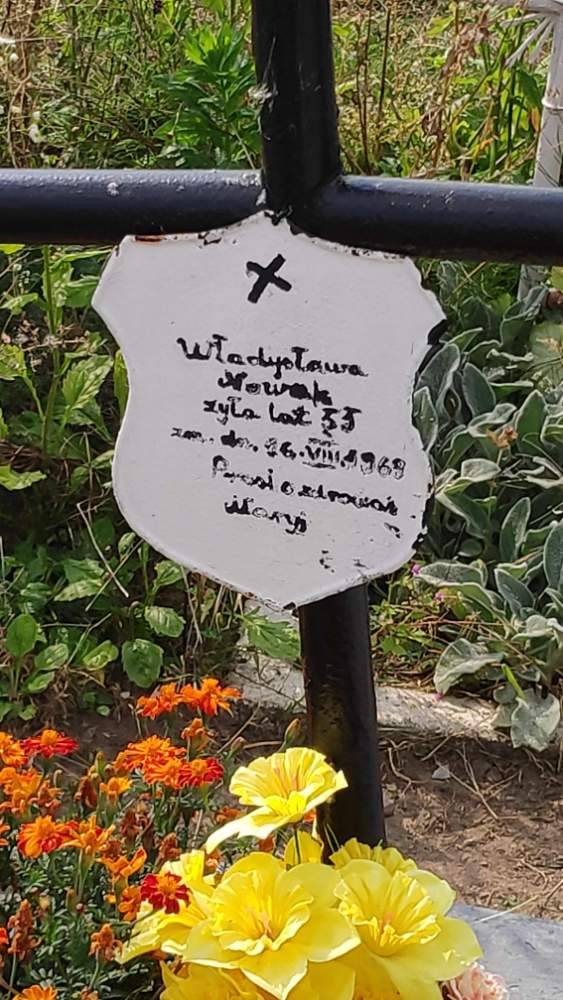 Władysława
Nowak
żyła lat 55
zm. dn. 26.VIII.1968
Prosi o zdrowaś
Maryj